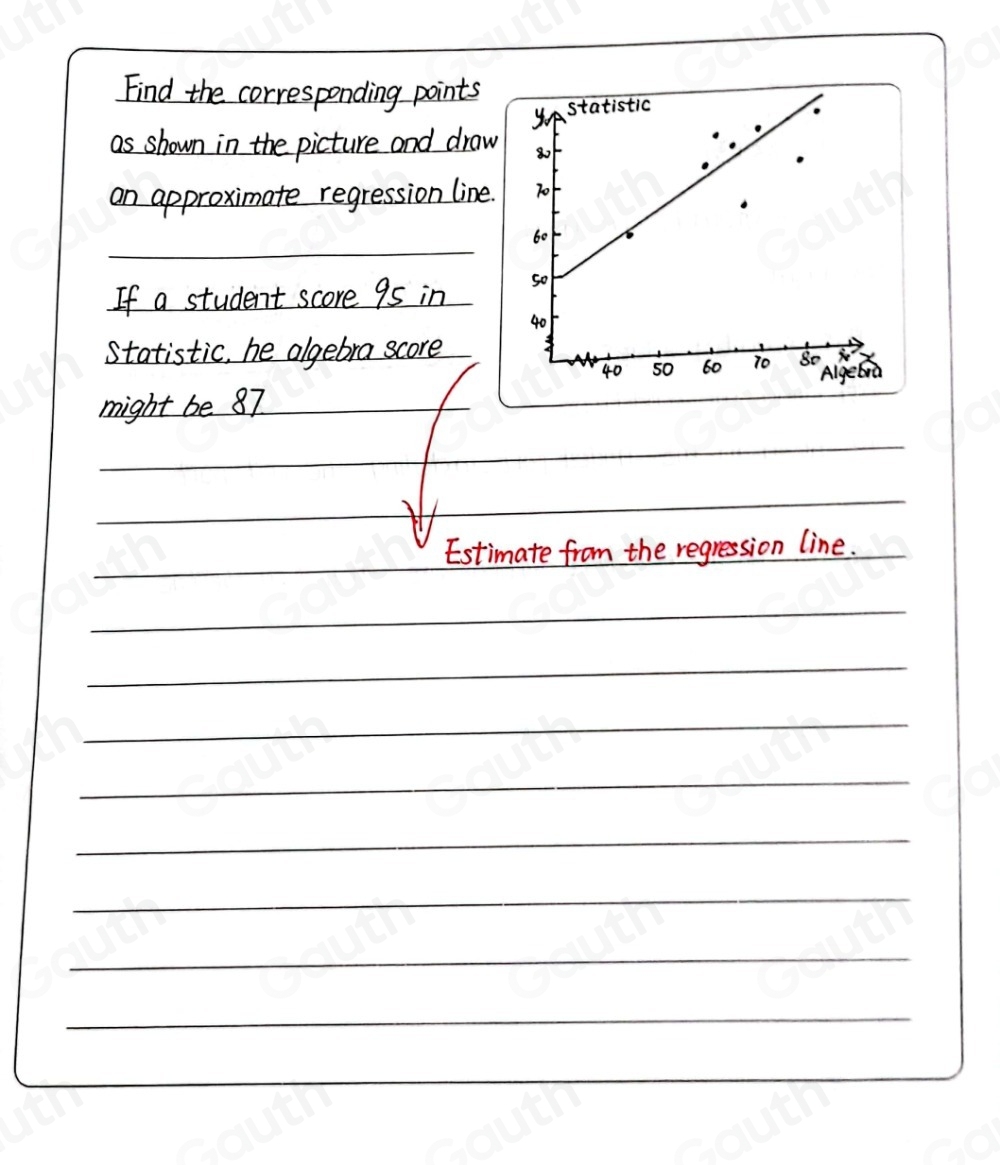 Find the corresponding points
as shown in the picture and draw
an approximate regression line.
If a student score 95 in
Statistic, he algebra score
might be 87
Statistic
80
70
60
50
40
40 50 60 70 80
Algebra
Estimate from the regression line.
Gauth